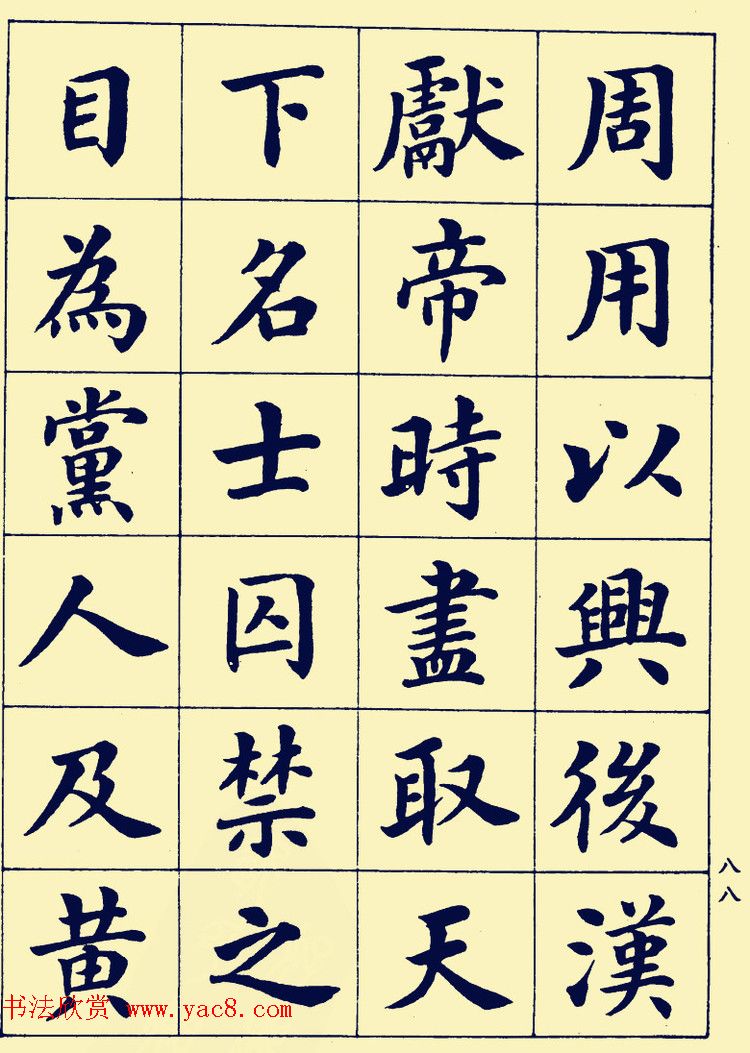 周用以興後漢
獻帝時盡取天
下名士囚禁之
目為黨人及黄
八八
书法欣赏 www.yac8.com